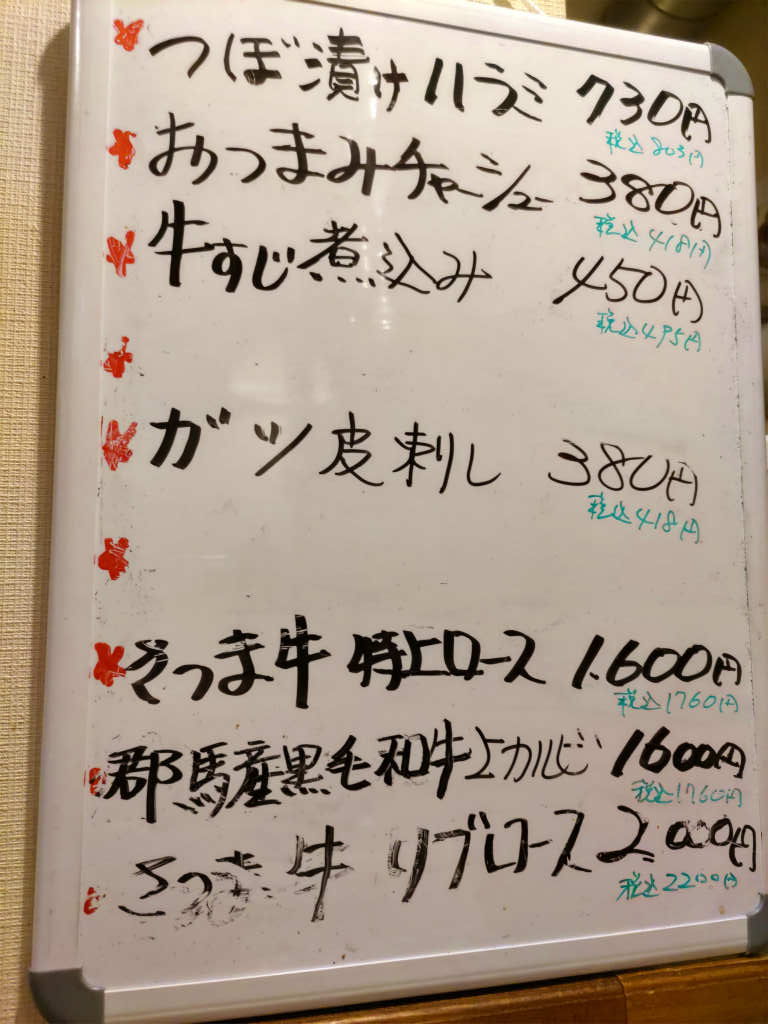 つぼ漬けハラミ 730円
税込803円
おつまみチャーシュー 380円
税込418円
牛すじ煮込み 450円
税込495円
ガツ皮刺し 380円
税込418円
さつま牛 特上ロース 1.600円
税込1760円
郡馬産黒毛和牛上カルビ 1600円
税込1760円
さつま牛 リブロース 2.000円
税込2200円